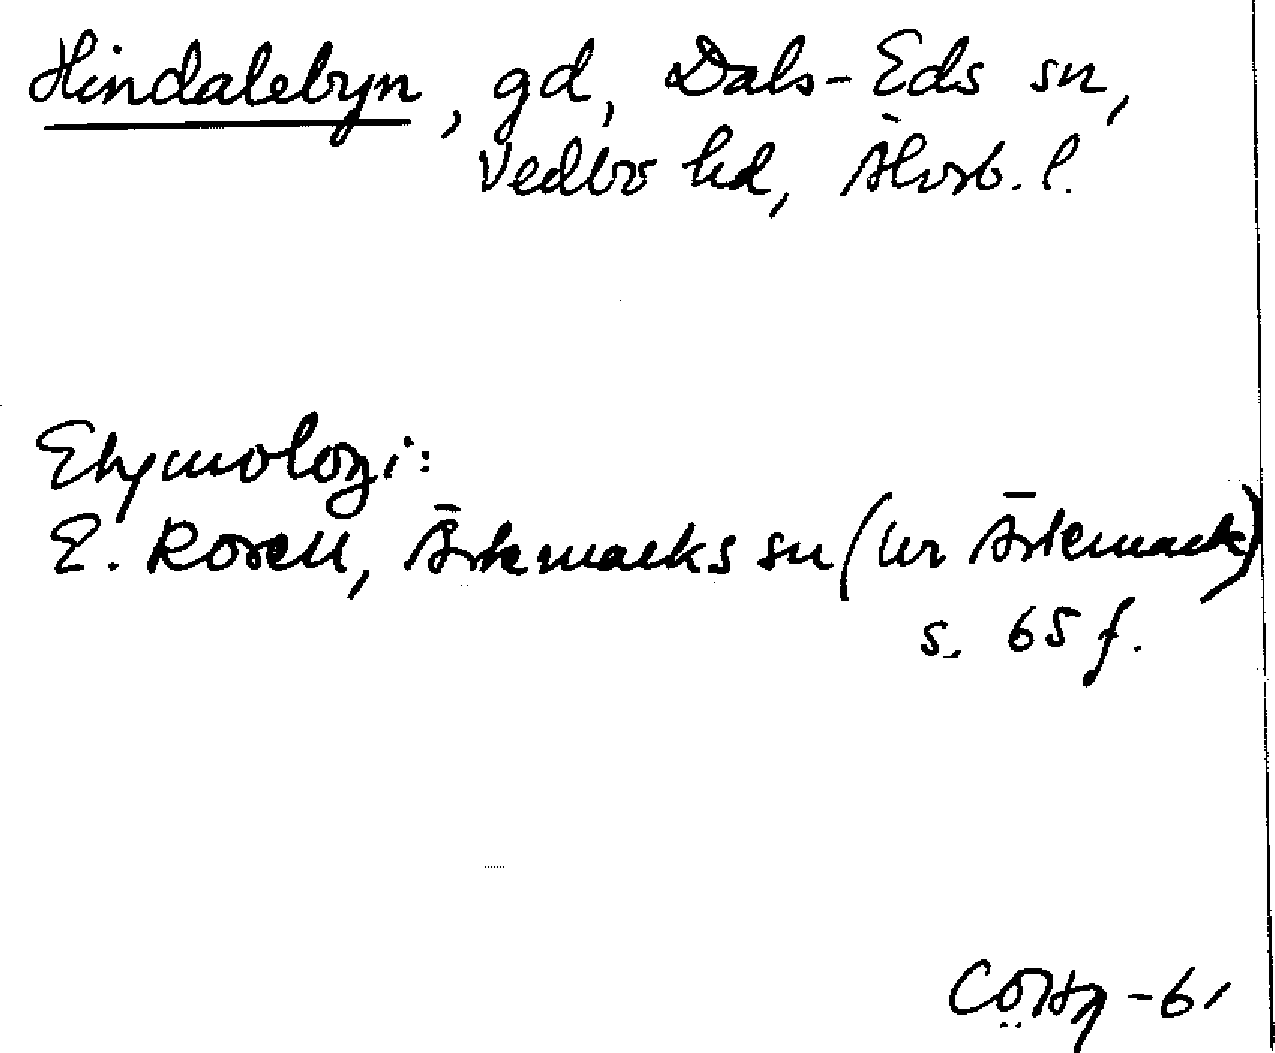 Hindalebyn, gd, Dals-Eds sn,
Vedbo hd, Älvsb. l.
Etymologi:
E. Rosell, Ärtemarks sn (ur Ärtemark)
s. 65 f.
-61